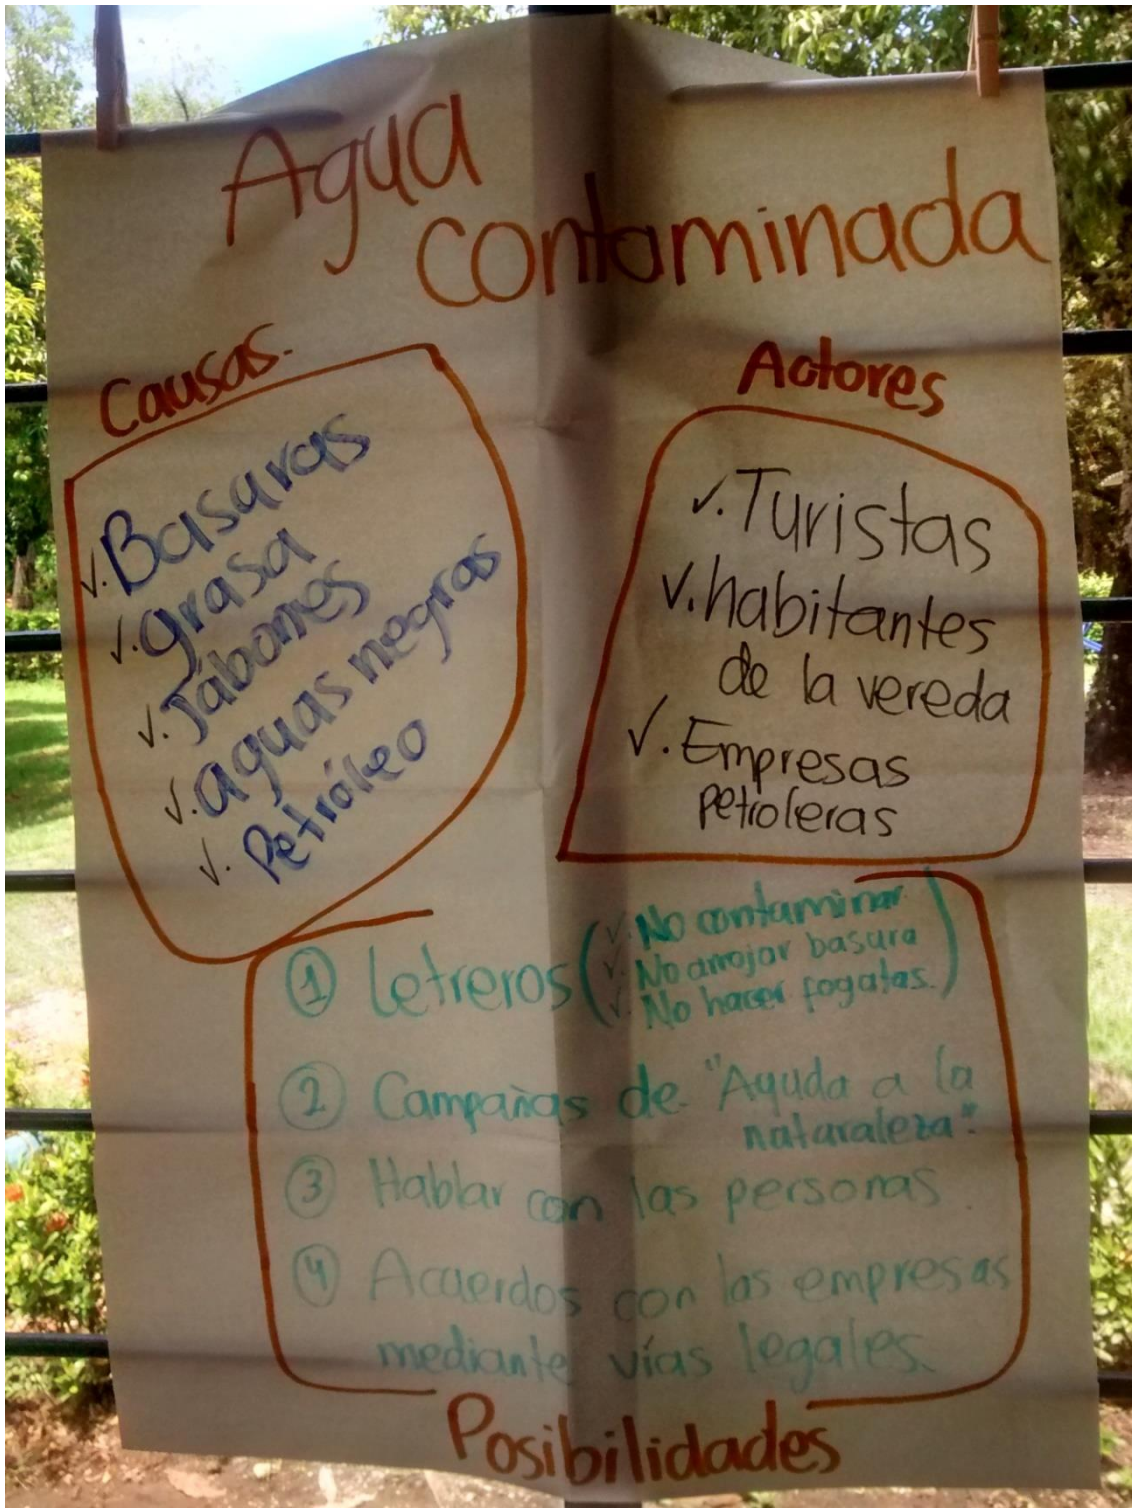 Agua
contaminada
Causas.
✓. Basuras
✓. grasa
✓. Jabones
✓. aguas negras
✓. Petróleo
Actores
✓. Turistas
✓. habitantes
de la vereda
✓. Empresas
petroleras
① Letreros (✓. No contaminar
✓. No arrojar basura
✓. No hacer fogatas.)
② Campañas de "Ayuda a la
naturaleza".
③ Hablar con las personas
④ Acuerdos con las empresas
mediante vías legales.
Posibilidades